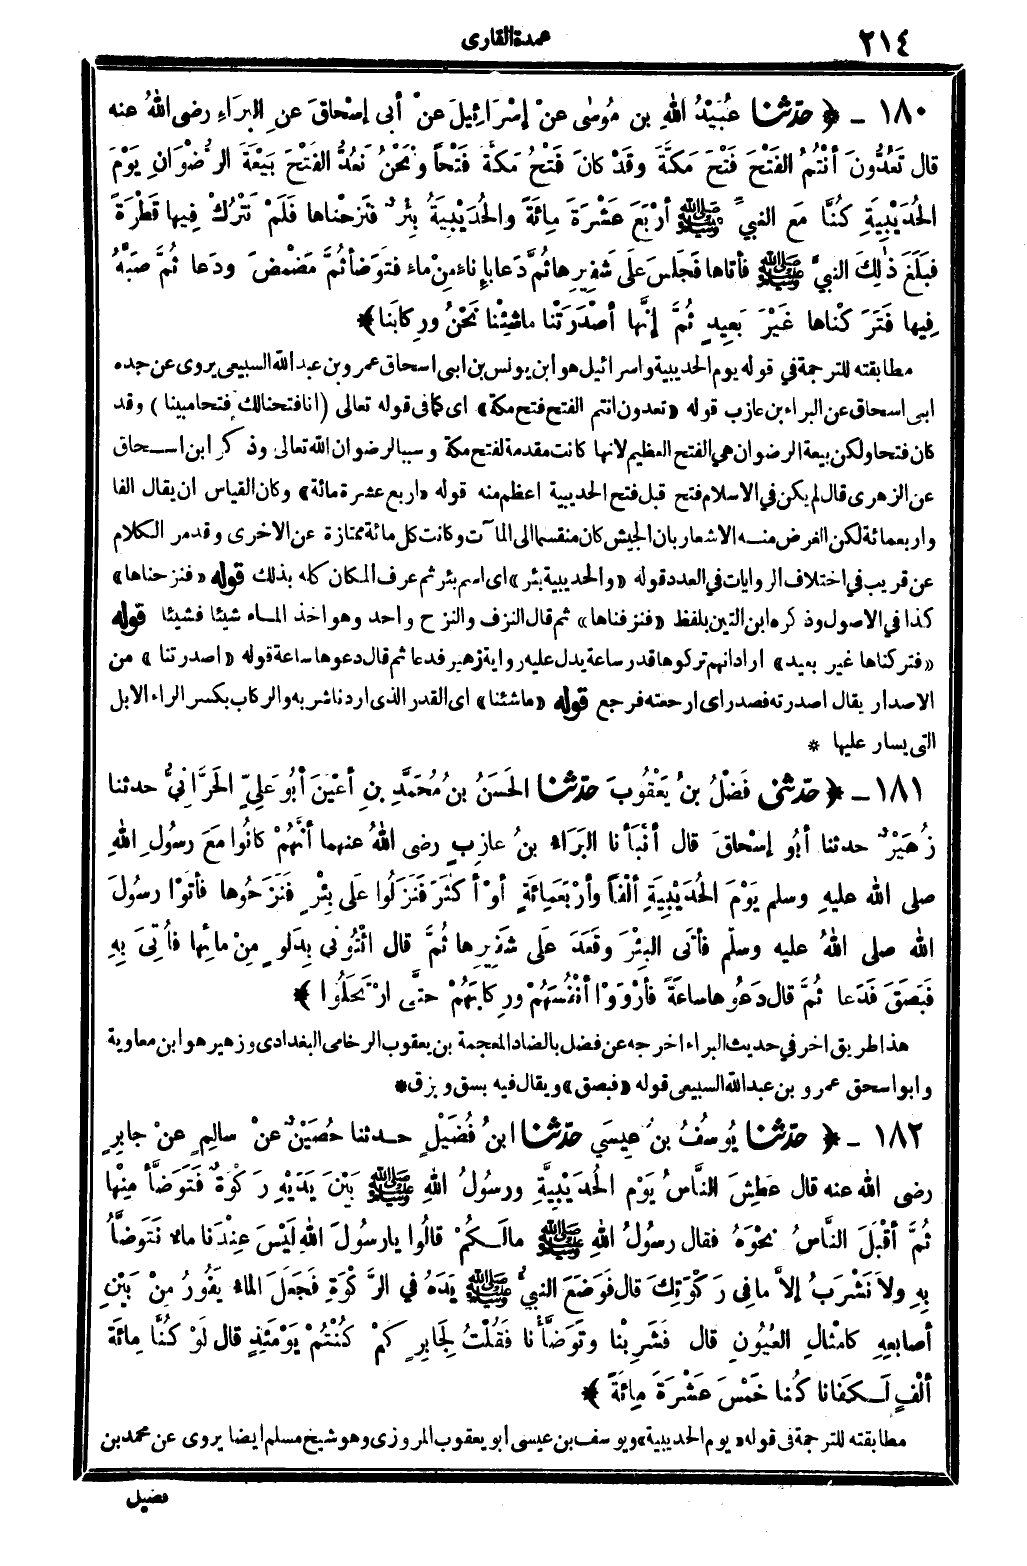 ٢١٤
عمدة القارى
١٨٠ - ﴿ حَدَّثنا عُبَيْدُ اللهِ بن مُوسٰى عنْ إسْرَائِيلَ عنْ أبى إسْحاقَ عنِ البَرَاءِ رضى اللهُ عنه
قال تَعُدُّونَ أنْتُمُ الفَتْحَ فَتْحَ مَكَّةَ وقَدْ كانَ فَتْحُ مَكَّةَ فَتْحاً ونَحْنُ نَعُدُّ الفَتْحَ بَيْعَةَ الرِّضْوَانِ يَوْمَ
الحُدَيْبِيَةِ كُنَّا مَع النبيِّ ﷺ أرْبَعَ عَشْرَةَ مِائَةً والحُدَيْبِيَةُ بِئْرٌ فَنَزَحْناها فَلَمْ نَتْرُكْ فِيها قَطْرَةً
فبَلَغَ ذٰلِكَ النبيَّ ﷺ فأتاها فَجَلسَ عَلَى شَفِيرِها ثُمَّ دَعا بإِناءٍ مِنْ ماءٍ فتوَضأ ثُمَّ مَضْمَضَ ودَعا ثُمَّ صَبَّهُ
فِيها فَتَرَكْناها غَيْرَ بَعِيدٍ ثُمَّ إنَّها أصْدَرَتْنا ماشِئْنا نَحْنُ ورِكابَنا ﴾
مطابقته للترجمة في قوله يوم الحديبية واسرائيل هو ابن يونس بن ابى اسحاق عمرو بن عبدالله السبيعى يروى عن جده
ابى اسحاق عن البراء بن عازب قوله «تعدون انتم الفتح فتح مكة» اى كما فى قوله تعالى (انا فتحنا لك فتحا مبينا) وقد
كان فتحا ولكن بيعة الرضوان هي الفتح العظيم لانها كانت مقدمة لفتح مكة وسببا لرضوان الله تعالى وذكر ابن اسحاق
عن الزهرى قال لم يكن في الاسلام فتح قبل فتح الحديبية اعظم منه قوله «اربع عشرة مائة» وكان القياس ان يقال الفا
واربعمائة لكن الغرض منه الاشعار بان الجيش كان منقسما الى المآت وكانت كل مائة ممتازة عن الاخرى وقد مر الكلام
عن قريب في اختلاف الروايات في العدد قوله «والحديبية بئر» اى اسم بئر ثم عرف المكان كله بذلك قوله «فنزحناها»
كذا في الاصول وذكره ابن التين بلفظ «فنزفناها» ثم قال النزف والنزح واحد وهو اخذ الماء شيئا فشيئا قوله
«فتركناها غير بعيد» اراد انهم تركوها قدر ساعة يدل عليه رواية زهير فدعا ثم قال دعوها ساعة قوله «اصدرتنا» من
الاصدار يقال اصدرته فصدر اى ارجعته فرجع قوله «ماشئنا» اى القدر الذى اردنا شربه والركاب بكسر الراء الابل
التى يسار عليها *
١٨١ - ﴿ حَدَّثنى فَضْلُ بنُ يَعْقُوبَ حَدَّثنا الحَسَنُ بنُ مُحَمَّدِ بنِ أعْيَنَ أبُو عَلِيٍّ الحَرَّانِيُّ حدثنا
زُهَيْرٌ حدثنا أبُو إسْحاقَ قال أنْبَأنا البَرَاءُ بنُ عازِبٍ رضى اللهُ عنهما أنَّهُمْ كانُوا مَعَ رسولِ اللهِ
صلى الله عليهِ وسلم يَوْمَ الحُدَيْبِيَةِ ألْفاً وأرْبَعَمِائَةٍ أوْ أكْثَرَ فَنَزَلُوا عَلى بِئْرٍ فَنَزَحُوها فأتَوْا رسولَ
اللهِ صلى اللهُ عليه وسلّم فأتَى البِئْرَ وقَعَدَ عَلَى شَفِيرِها ثُمَّ قال ائْتُونى بِدَلْوٍ مِنْ مائِها فأُتِيَ بِهِ
فَبَصَقَ فَدَعا ثُمَّ قال دَعُوها ساعَةً فأرْوَوْا أنْفُسَهُمْ ورِكابَهُمْ حتَّى ارْتَحَلُوا ﴾
هذا طريق اخر في حديث البراء اخرجه عن فضل بالضاد المعجمة بن يعقوب الرخامى البغدادى وزهير هو ابن معاوية
وابو اسحق عمرو بن عبدالله السبيعى قوله «فبصق» ويقال فيه بسق وبزق *
١٨٢ - ﴿ حَدَّثنا يُوسُفُ بنُ عِيسَى حَدَّثنا ابنُ فُضَيْلٍ حدثنا حُصَيْنٌ عنْ سالِمٍ عنْ جابِرٍ
رضى الله عنه قال عَطِشَ النَّاسُ يَوْمَ الحُدَيْبِيَّةِ ورسولُ اللهِ ﷺ بَيْنَ يَدَيْهِ رَكْوَةٌ فَتَوَضَّأ مِنْها
ثُمَّ أقْبَلَ النَّاسُ نَحْوَهُ فقال رسولُ اللهِ ﷺ مالَكُمْ قالُوا يارسولَ اللهِ لَيْسَ عِنْدَنا ماءٌ نَتَوَضَّأُ
بِهِ ولاَ نَشْرَبُ إلاَّ ما فى رَكْوَتِكَ قال فَوَضَعَ النبيُّ ﷺ يَدَهُ فى الرَّكْوَةِ فَجَعَلَ الماءُ يَفُورُ مِنْ بَيْنِ
أصابِعِهِ كامْثالِ العُيُونِ قال فَشَرِبْنا وتَوَضَّأْنا فَقُلْتُ لِجَابِرٍ كمْ كُنْتُمْ يَوْمَئِذٍ قال لَوْ كُنَّا مِائَةَ
ألْفٍ لَكَفَانا كُنا خَمْسَ عَشْرَةَ مِائَةً ﴾
مطابقته للترجمة فى قوله «يوم الحديبية» ويوسف بن عيسى ابو يعقوب المروزى وهو شيخ مسلم ايضا يروى عن محمد بن
فضيل